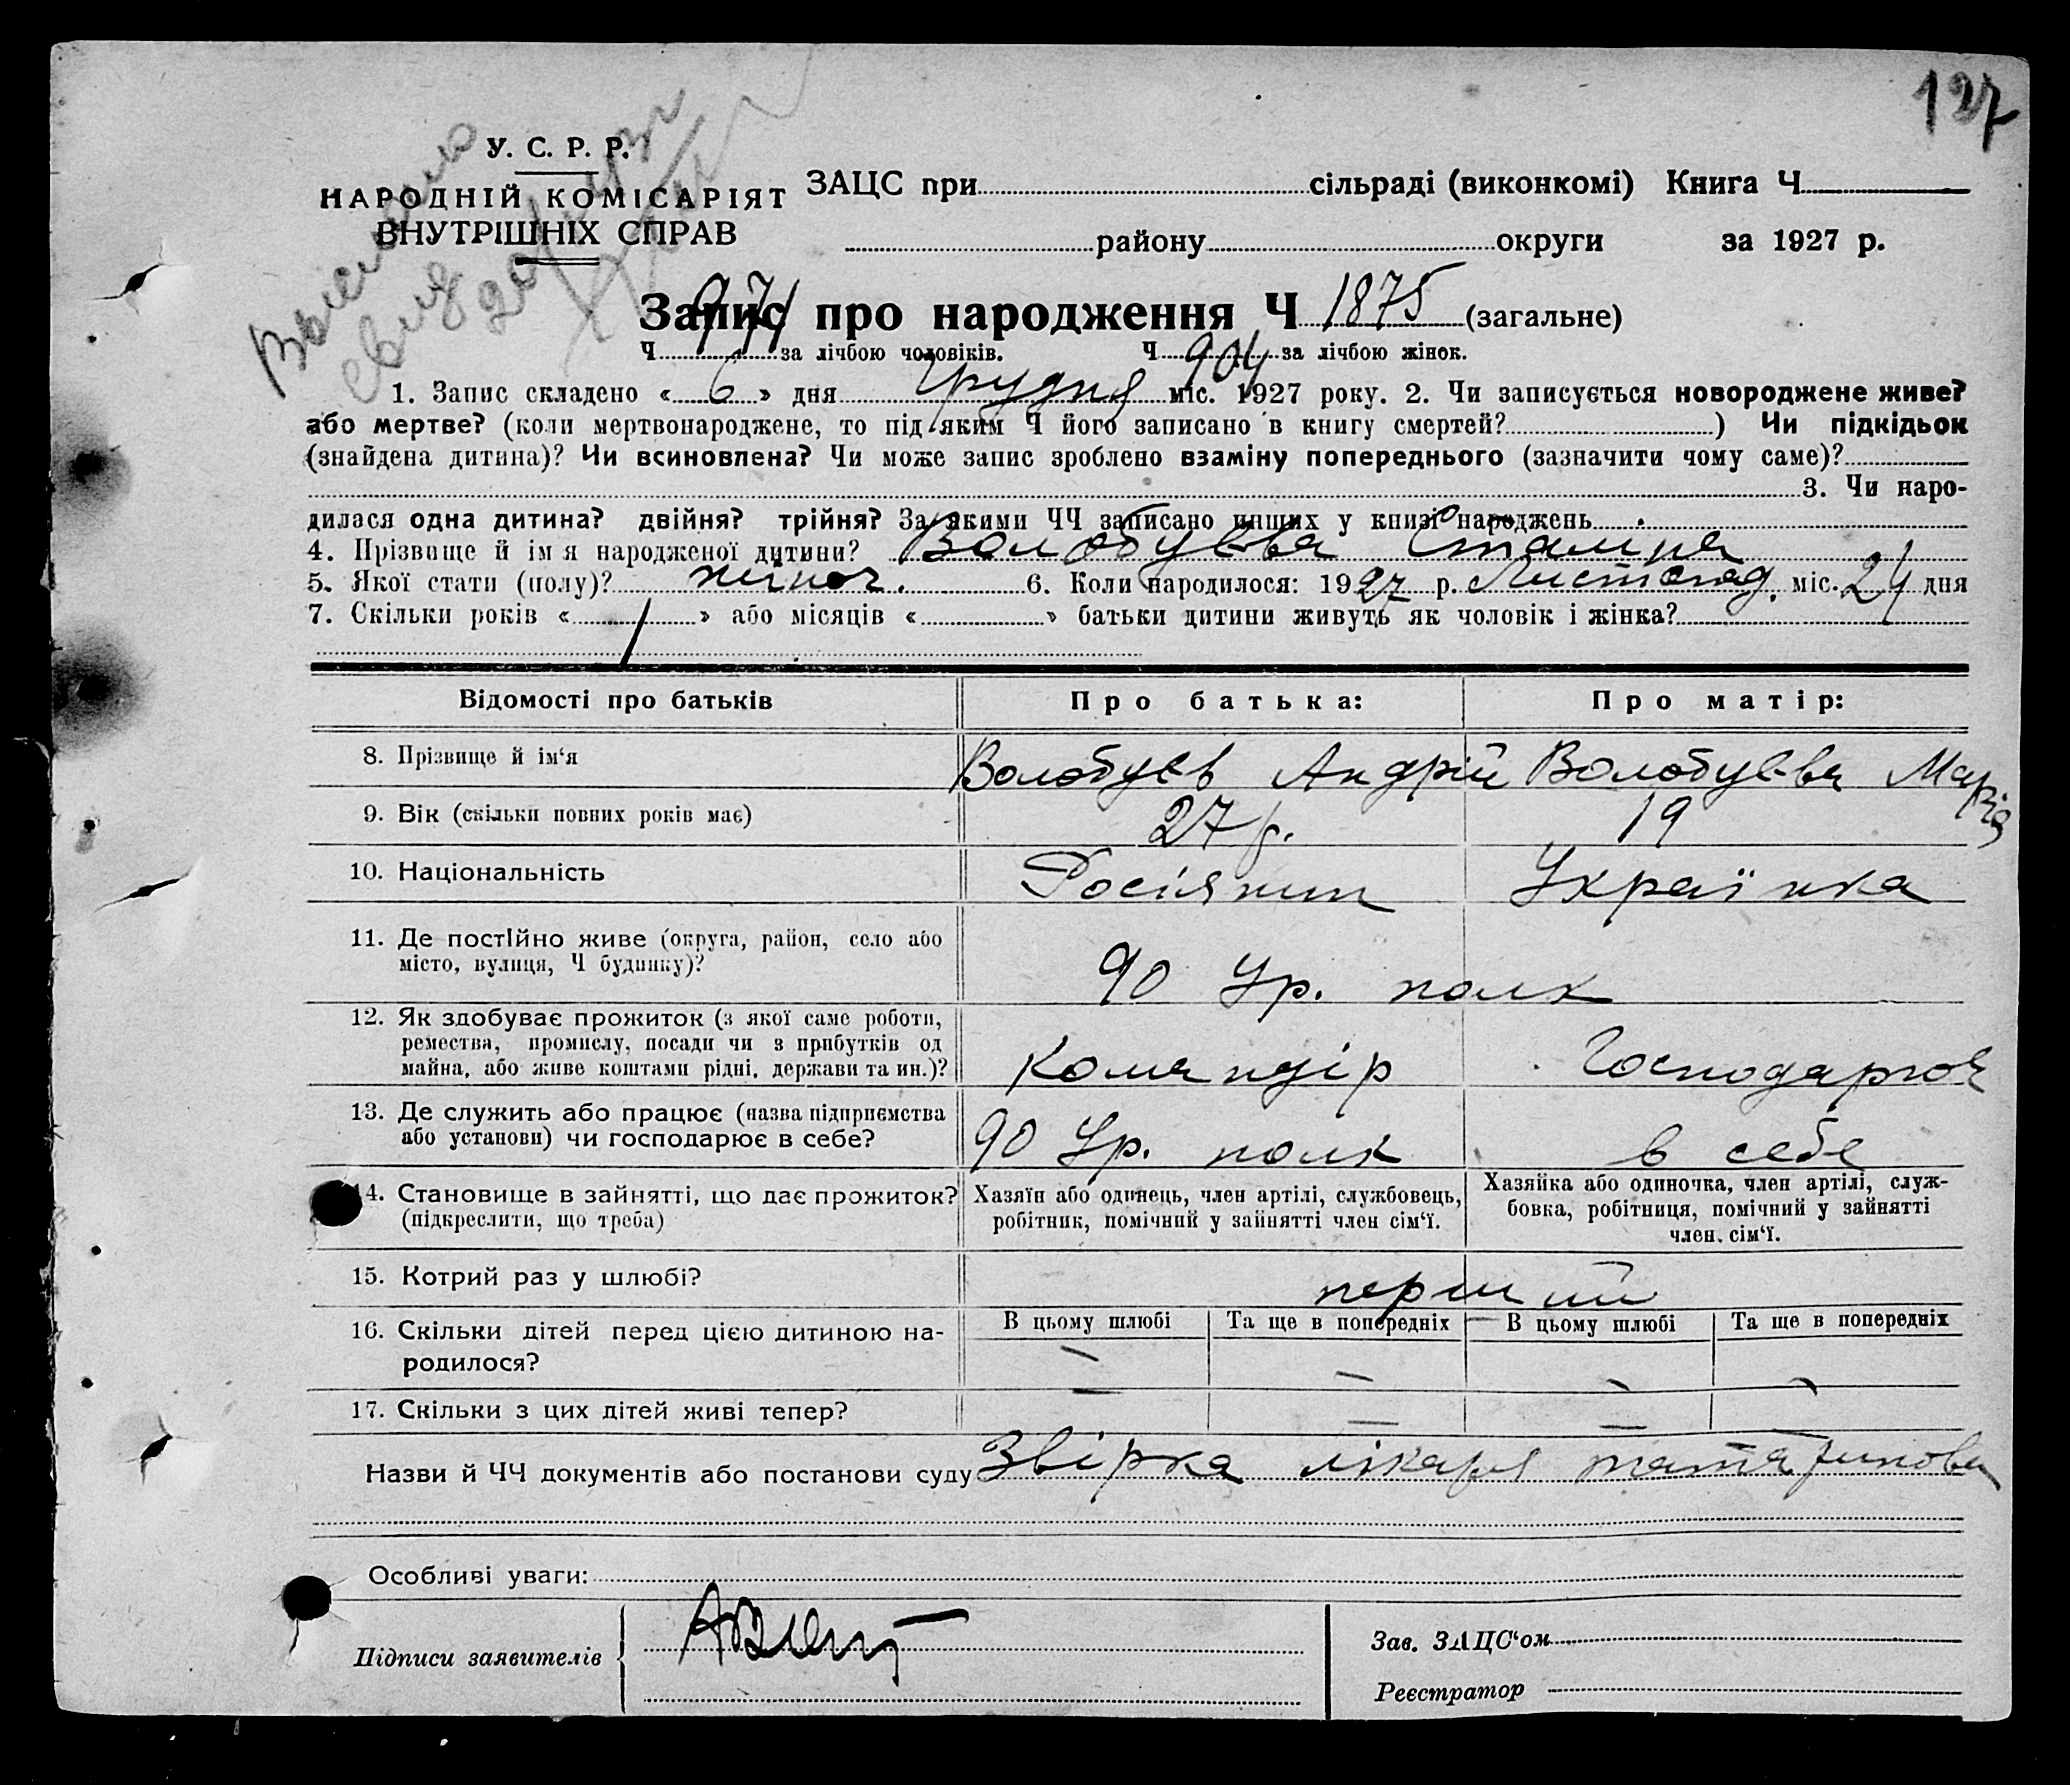 127
У. С. Р. Р.
НАРОДНІЙ КОМІСАРІЯТ
ВНУТРІШНІХ СПРАВ
ЗАЦС при сільраді (виконкомі) Книга Ч
району округи за 1927 р.
Запис про народження Ч 1875 (загальне)
Ч 971 за лічбою чоловіків. Ч 904 за лічбою жінок.
1. Запис складено « 6 » дня Грудня міс. 1927 року. 2. Чи записується новороджене живе?
або мертве? (коли мертвонароджене, то під яким Ч його записано в книгу смертей? ) Чи підкідьок
(знайдена дитина)? Чи всиновлена? Чи може запис зроблено взаміну попереднього (зазначити чому саме)?
3. Чи наро-
дилася одна дитина? двійня? трійня? За якими ЧЧ записано инших у книзі народжень
4. Прізвище й ім я народженої дитини? Волобуєва Сталіна
5. Якої стати (полу)? жіноч. 6. Коли народилося: 1927 р. Листопад. міс. 24 дня
7. Скільки років « 1 » або місяців « » батьки дитини живуть як чоловік і жінка?
Відомості про батьків Про батька: Про матір:
8. Прізвище й ім‘я Волобуєв Андрій Волобуєва Марія
9. Вік (скільки повних років має) 27 р. 19
10. Національність Росіянин Українка
11. Де постІйно живе (округа, район, село або
місто, вулиця, Ч будинку)? 90 Ур. полк
12. Як здобуває прожиток (з якої саме роботи,
ремества, промислу, посади чи з прибутків од
майна, або живе коштами рідні, держави та ин.)? Командір Господарює
13. Де служить або працює (назва підприємства
або установи) чи господарює в себе? 90 Ур. полк в себе
14. Становище в зайнятті, що дає прожиток?
(підкреслити, що треба)
Хазяїн або одинець, член артілі, службовець,
робітник, помічний у зайнятті член сім‘ї.
Хазяйка або одиночка, член артілі, служ-
бовка, робітниця, помічний у зайнятті
член сім‘ї.
15. Котрий раз у шлюбі? перший
16. Скільки дітей перед цією дитиною на-
родилося?
В цьому шлюбі Та ще в попередніх В цьому шлюбі Та ще в попередніх
17. Скільки з цих дітей живі тепер?
Назви й ЧЧ документів або постанови суду Звірка лікаря Татарінова
Особливі уваги:
Підписи заявителів
Зав. ЗАЦС‘ом
Реєстратор